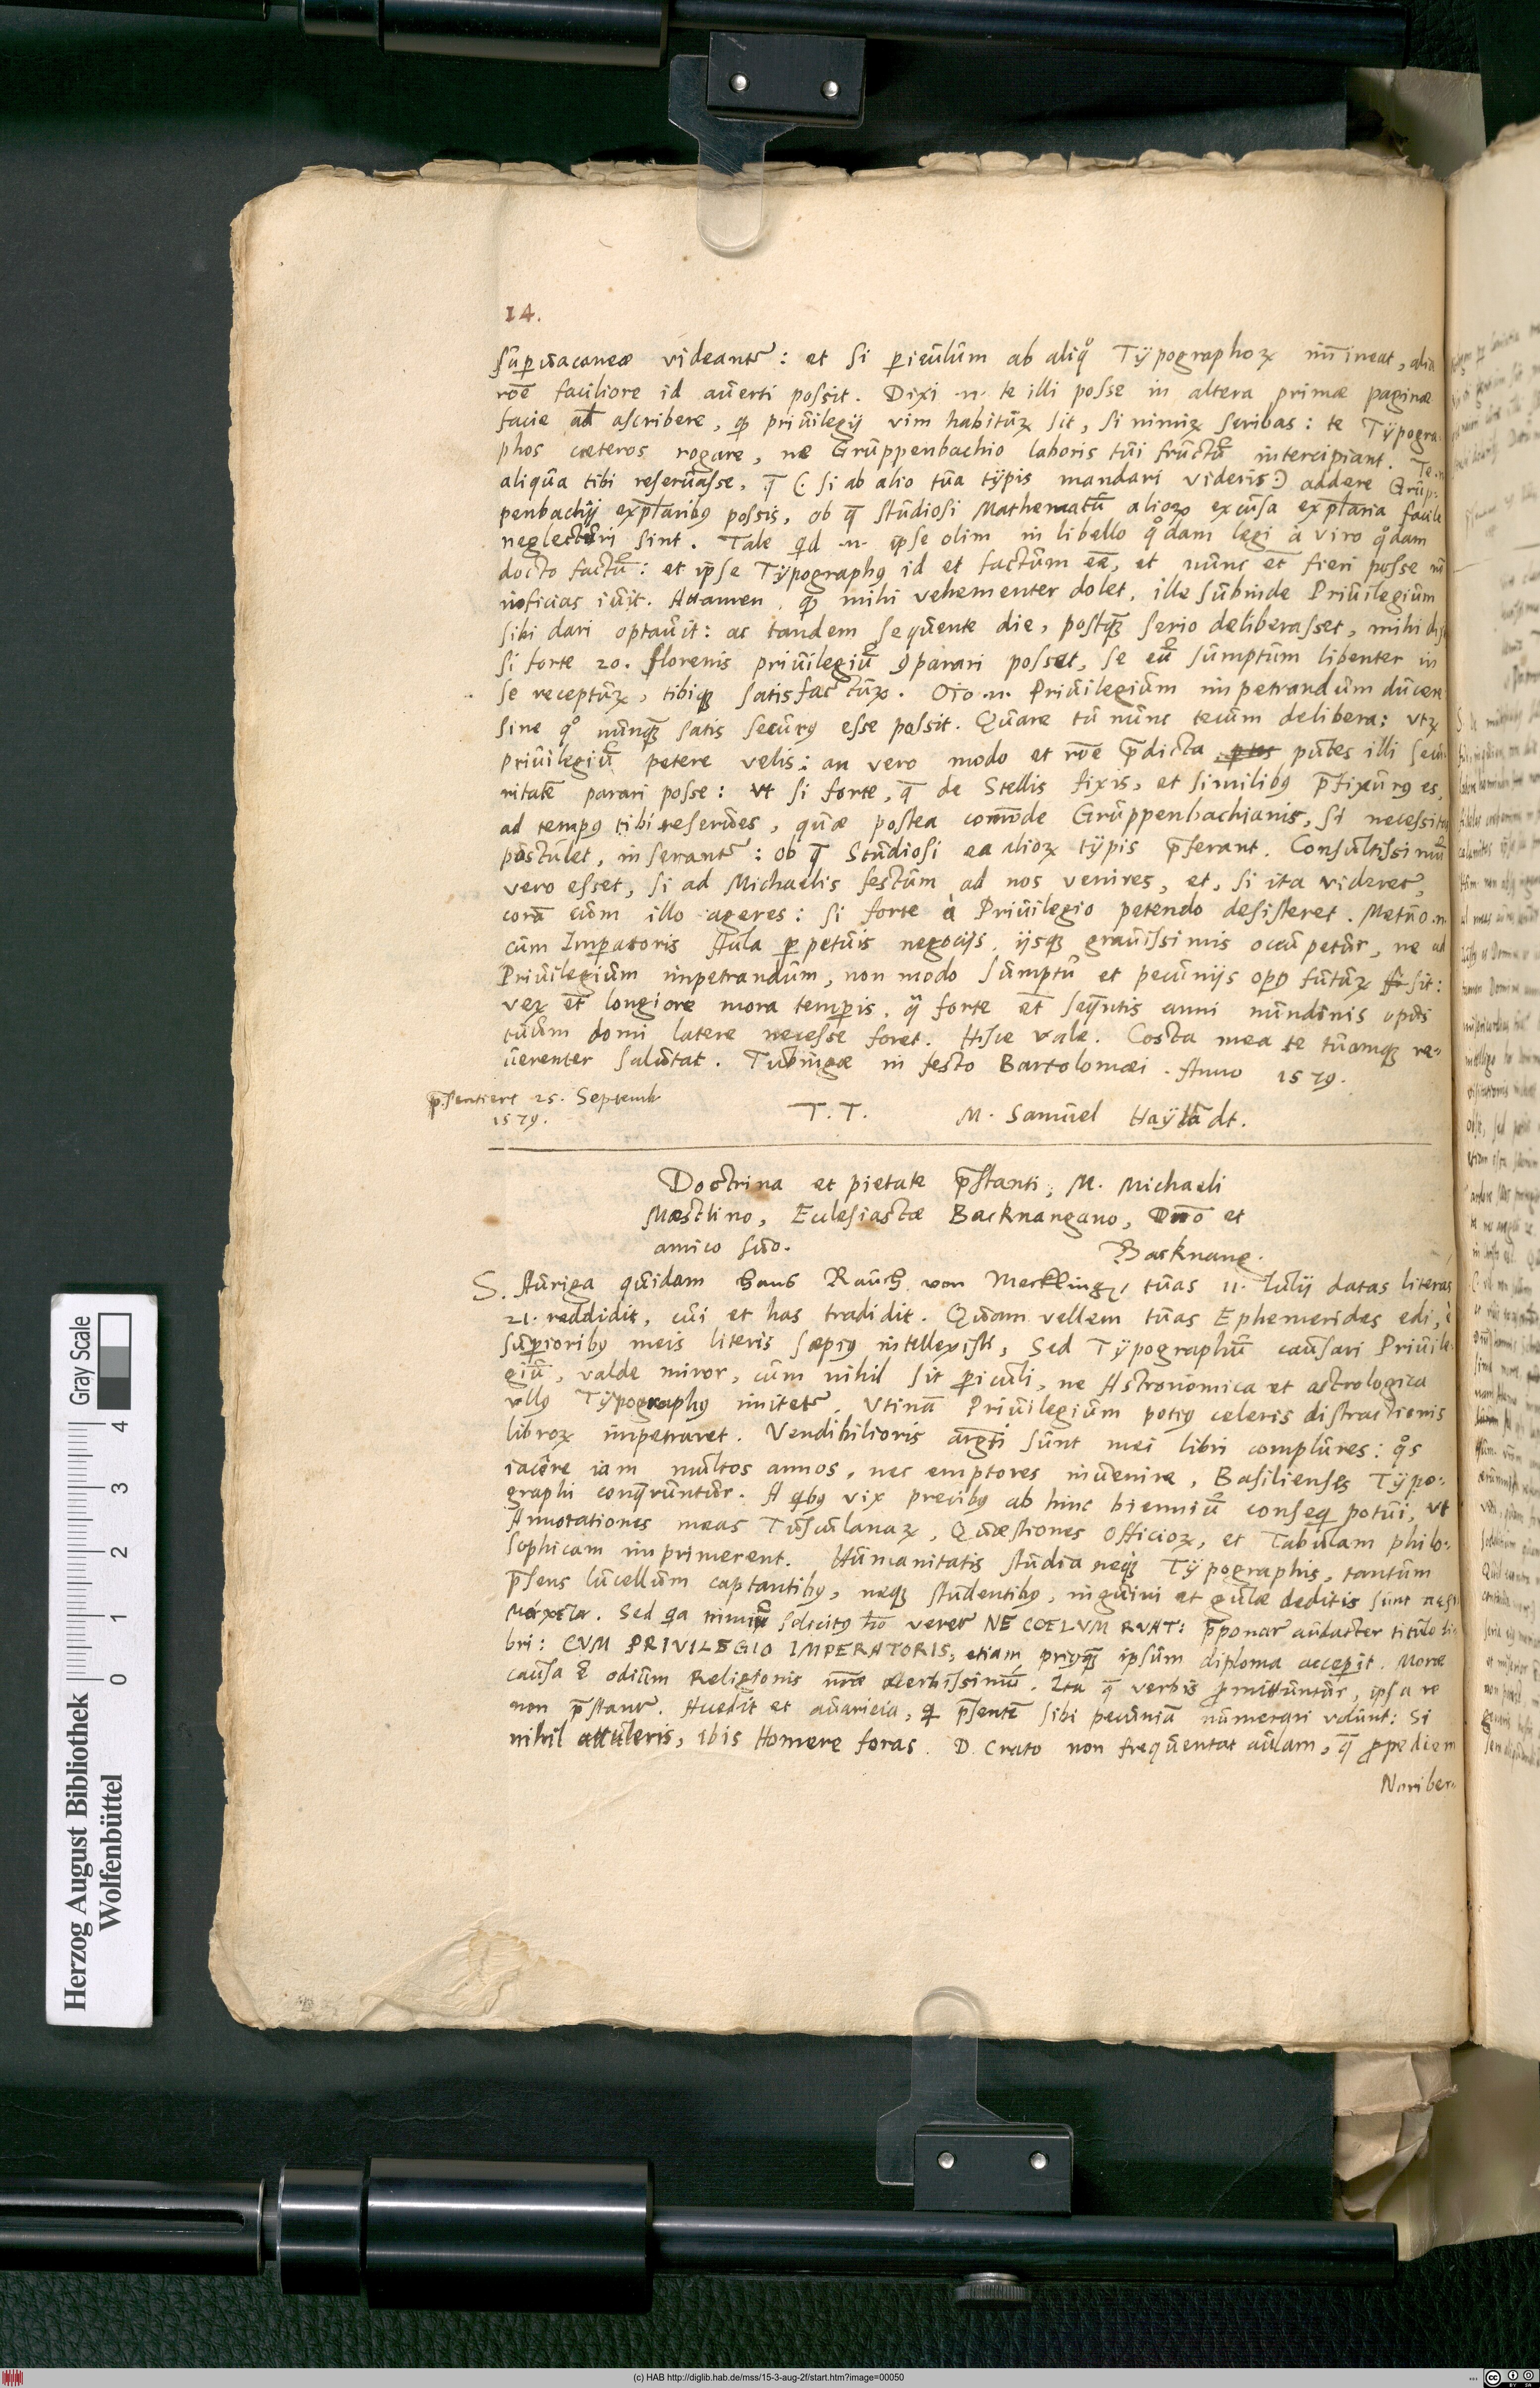 14.
sup̱uacaneæ videant᷑: et si p̱iculum ab aliqͦ Typographoꝝ im̄ineat, alia
rōe faciliore id auerti possit. Dixi .n. te illi posse in altera primæ paginæ
facie ascribere, qḏ priuilegij vim habituꝝ sit, si nimiꝝ scribas: te Typogra-
phos cæteros rogare, ne Gruppenbachio laboris tui fructū intercipiant. Te .n.
aliqua tibi reseruasse, q̄ (: si ab alio tua typis mandari videris:) addere Grup-
penbachij exp̄laribꝰ possis, ob q̄ studiosi Mathematū alioꝝ excusa exp̄laria facile
neglecturi sint. Tale qd .n. ip̄se olim in libello qͦdam legi à viro qͦdam
docto factū: et ip̄se Typographꝰ id et factum eē, et nunc et̄ fieri posse in
inficias iuit. Attamen, qḏ mihi vehementer dolet, ille subinde Priuilegium
sibi dari optauit: ac tandem sequente die, postqꝫ serio deliberasset, mihi dix
si forte 20. florenis priuilegiū ꝯparari posset, se eū sumptum libenter in
se receptuꝝ, tibiqꝫ satisfactuꝝ. Oīo .n. Priuilegium impetrandum ducen
sine qͦ nunqꝫ satis securꝰ esse possit. Quare tu nunc tecum delibera: vtꝝ
priuilegiū petere velis: an vero modo et rōe p̄dicta putes illi secu-
ritatē parari posse: vt si forte, q̄ de Stellis fixis, et similibꝰ p̄fixurꝰ es,
ad tempꝰ tibi reserues, quæ postea com̄ode Gruppenbachianis, si necessitas
postulet, inserant᷑: ob q̄ Studiosi ea alioꝝ typis p̄ferant. Consultissimū
vero esset, si ad Michaelis festum ad nos venires, et, si ita videret᷑,
corā cum illo ageres: si forte à Priuilegio petendo desisteret. Metuo .n.
cum Imp̱atoris Aula p̱petuis negocijs, ijsqꝫ grauissimis occupetur, ne ad
Priuilegium impetrandum, non modo sumptu et pecunijs opꝰ futuꝝ sit:
veꝝ et̄ longiore mora temp̱is, q̄ forte et̄ seq̄ntis anni nundinis opus
tuum domi latere necesse foret. Hisce vale. Costa mea te tuamqꝫ re-
uerenter salutat. Tubingæ in festo Bartolomæi. Anno 1579.
p̄sentiert 25. Septemb
1579.
T. T. M. Samuel Haylādt.
Doctrina et pietate p̄stanti, M. Michaeli
Mæstlino, Ecclesiastæ Backnangano, Dn̄o et
amico suo.
Backnang.
S. Auriga quidam Hans Rauch von Mecklingꝭ tuas 11. Iulij datas literas
21. reddidit, cui et has tradidit. Quam vellem tuas Ephemerides edi, è
sup̱ioribꝰ meis literis sæpiꝰ intellexisti, Sed Typographum causari Priuile-
giū, valde miror, cum nihil sit p̱iculi, ne Astronomica et astrologica
vllꝰ Typographꝰ imitet᷑. Vtinā Priuilegium potiꝰ celeris distractionis
libroꝝ impetraret. Vendibilioris arḡti sunt mei libri complures: qͦs
iacere iam multos annos, nec emptores inuenire, Basilienses Typo-
graphi conq̄runtur. A qbꝰ vix precibꝰ ab hinc bienniū conseq potui, vt
Annotationes meas Tusculanaꝝ, Quæstiones Officioꝝ, et Tabulam philo-
sophicam imprimerent. Humanitatis studia neqꝫ Typographis, tantum
p̄sens lucellum captantibꝰ, neqꝫ studentibꝰ, inguini et gulæ deditis sunt περι-
μάχητα. Sed qa nimiū solicitꝰ hō veret᷑ NE COELVM RVAT: p̄ponat᷑ audacter titulo li-
bri: CVM PRIVILEGIO IMPERATORIS, etiam priꝰqꝫ ipsum diploma accep̱it. Moræ
causa ē odium Religionis nr̄æ acerbissimū. Ita q̄ verbis ꝓmittuntur, ipsa re
non p̄stant᷑. Accedit et auaricia, q p̄sentē sibi pecuniā numerari volunt: Si
nihil attuleris, ibis Homere foras. D. Crato non frequentat aulam, q̄ ꝓpediem
Noriber-
Herzog August Bibliothek
Wolfenbüttel
Gray Scale
0 1 2 3 4
(c) HAB http://diglib.hab.de/mss/15-3-aug-2f/start.htm?image=00050